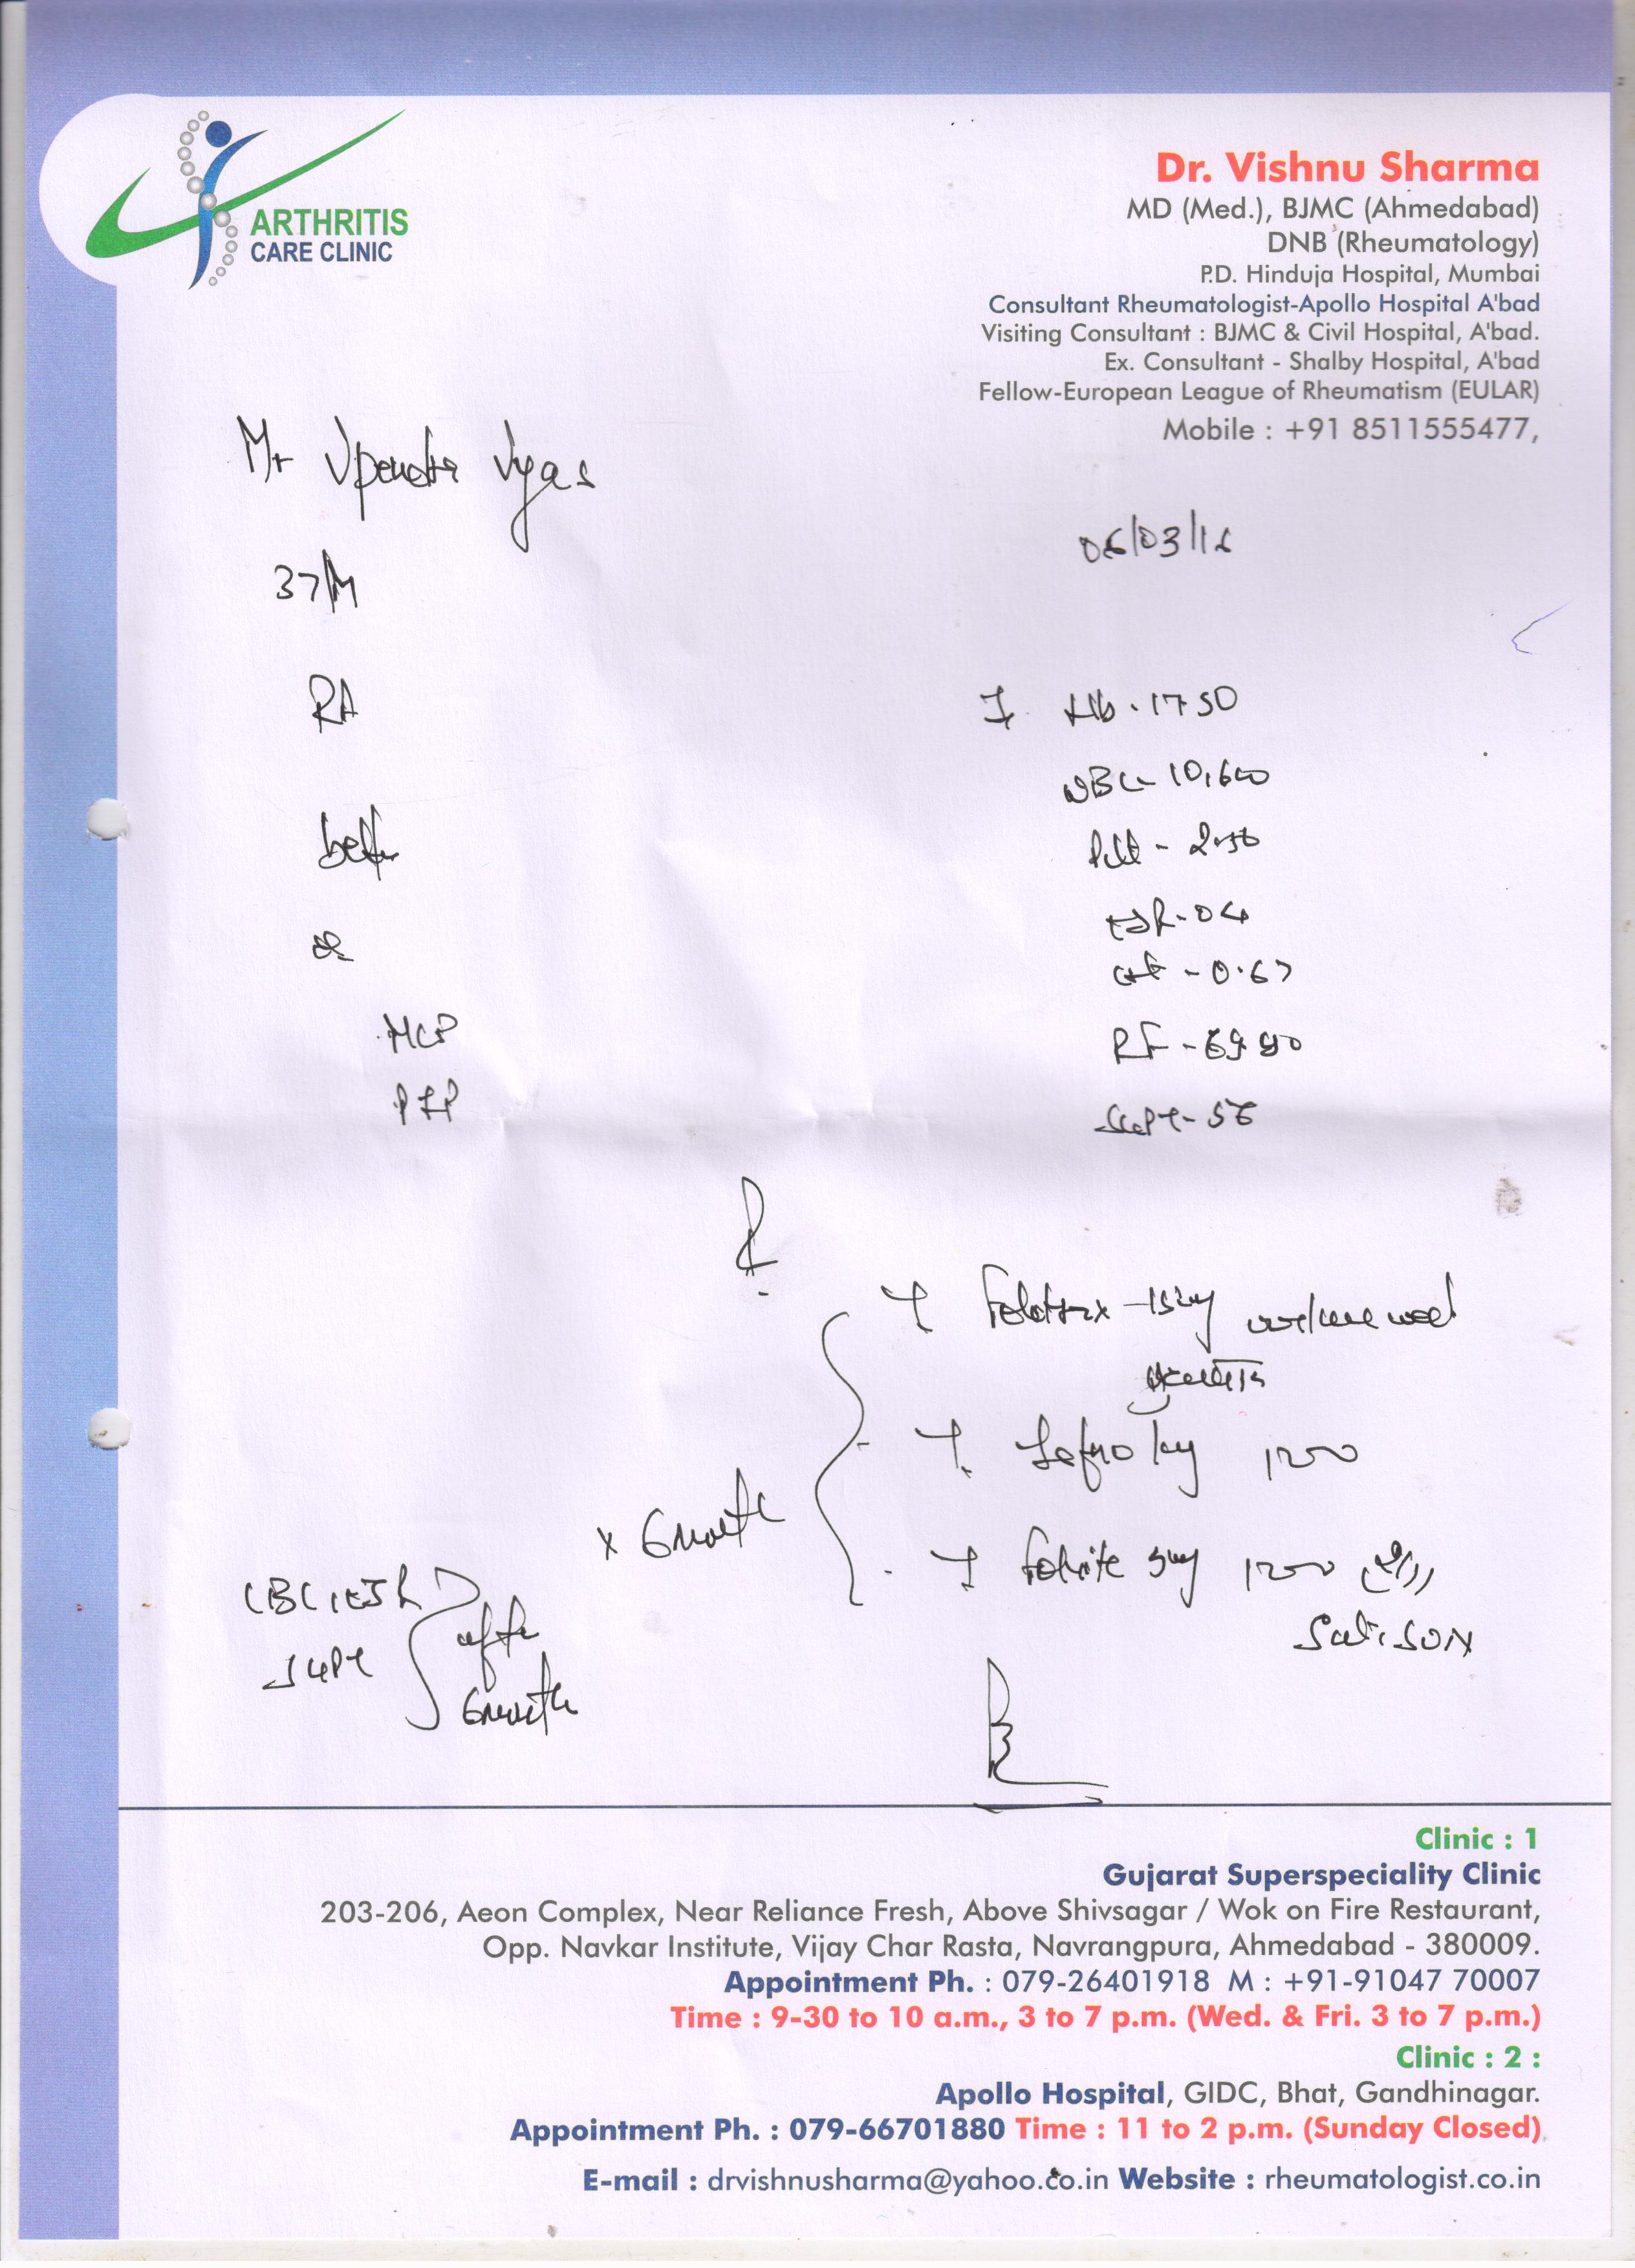 ARTHRITIS
CARE CLINIC
Dr. Vishnu Sharma
MD (Med.), BJMC (Ahmedabad)
DNB (Rheumatology)
P.D. Hinduja Hospital, Mumbai
Consultant Rheumatologist-Apollo Hospital A'bad
Visiting Consultant : BJMC & Civil Hospital, A'bad.
Ex. Consultant - Shalby Hospital, A'bad
Fellow-European League of Rheumatism (EULAR)
Mobile : +91 8511555477,
Mr Upendra Vyas
06/03/16
37/M
RA
Hb. 17.50
WBC - 10,600
better
Plt -
ESR - 04
MCP
RF -
PIP
SGPT - 56
T
T
x 6 month
T Folvite 5mg
CBC, ESR
SGPT
after
6 month
Clinic : 1
Gujarat Superspeciality Clinic
203-206, Aeon Complex, Near Reliance Fresh, Above Shivsagar / Wok on Fire Restaurant,
Opp. Navkar Institute, Vijay Char Rasta, Navrangpura, Ahmedabad - 380009.
Appointment Ph. : 079-26401918 M : +91-91047 70007
Time : 9-30 to 10 a.m., 3 to 7 p.m. (Wed. & Fri. 3 to 7 p.m.)
Clinic : 2 :
Apollo Hospital, GIDC, Bhat, Gandhinagar.
Appointment Ph. : 079-66701880 Time : 11 to 2 p.m. (Sunday Closed)
E-mail : drvishnusharma@yahoo.co.in Website : rheumatologist.co.in